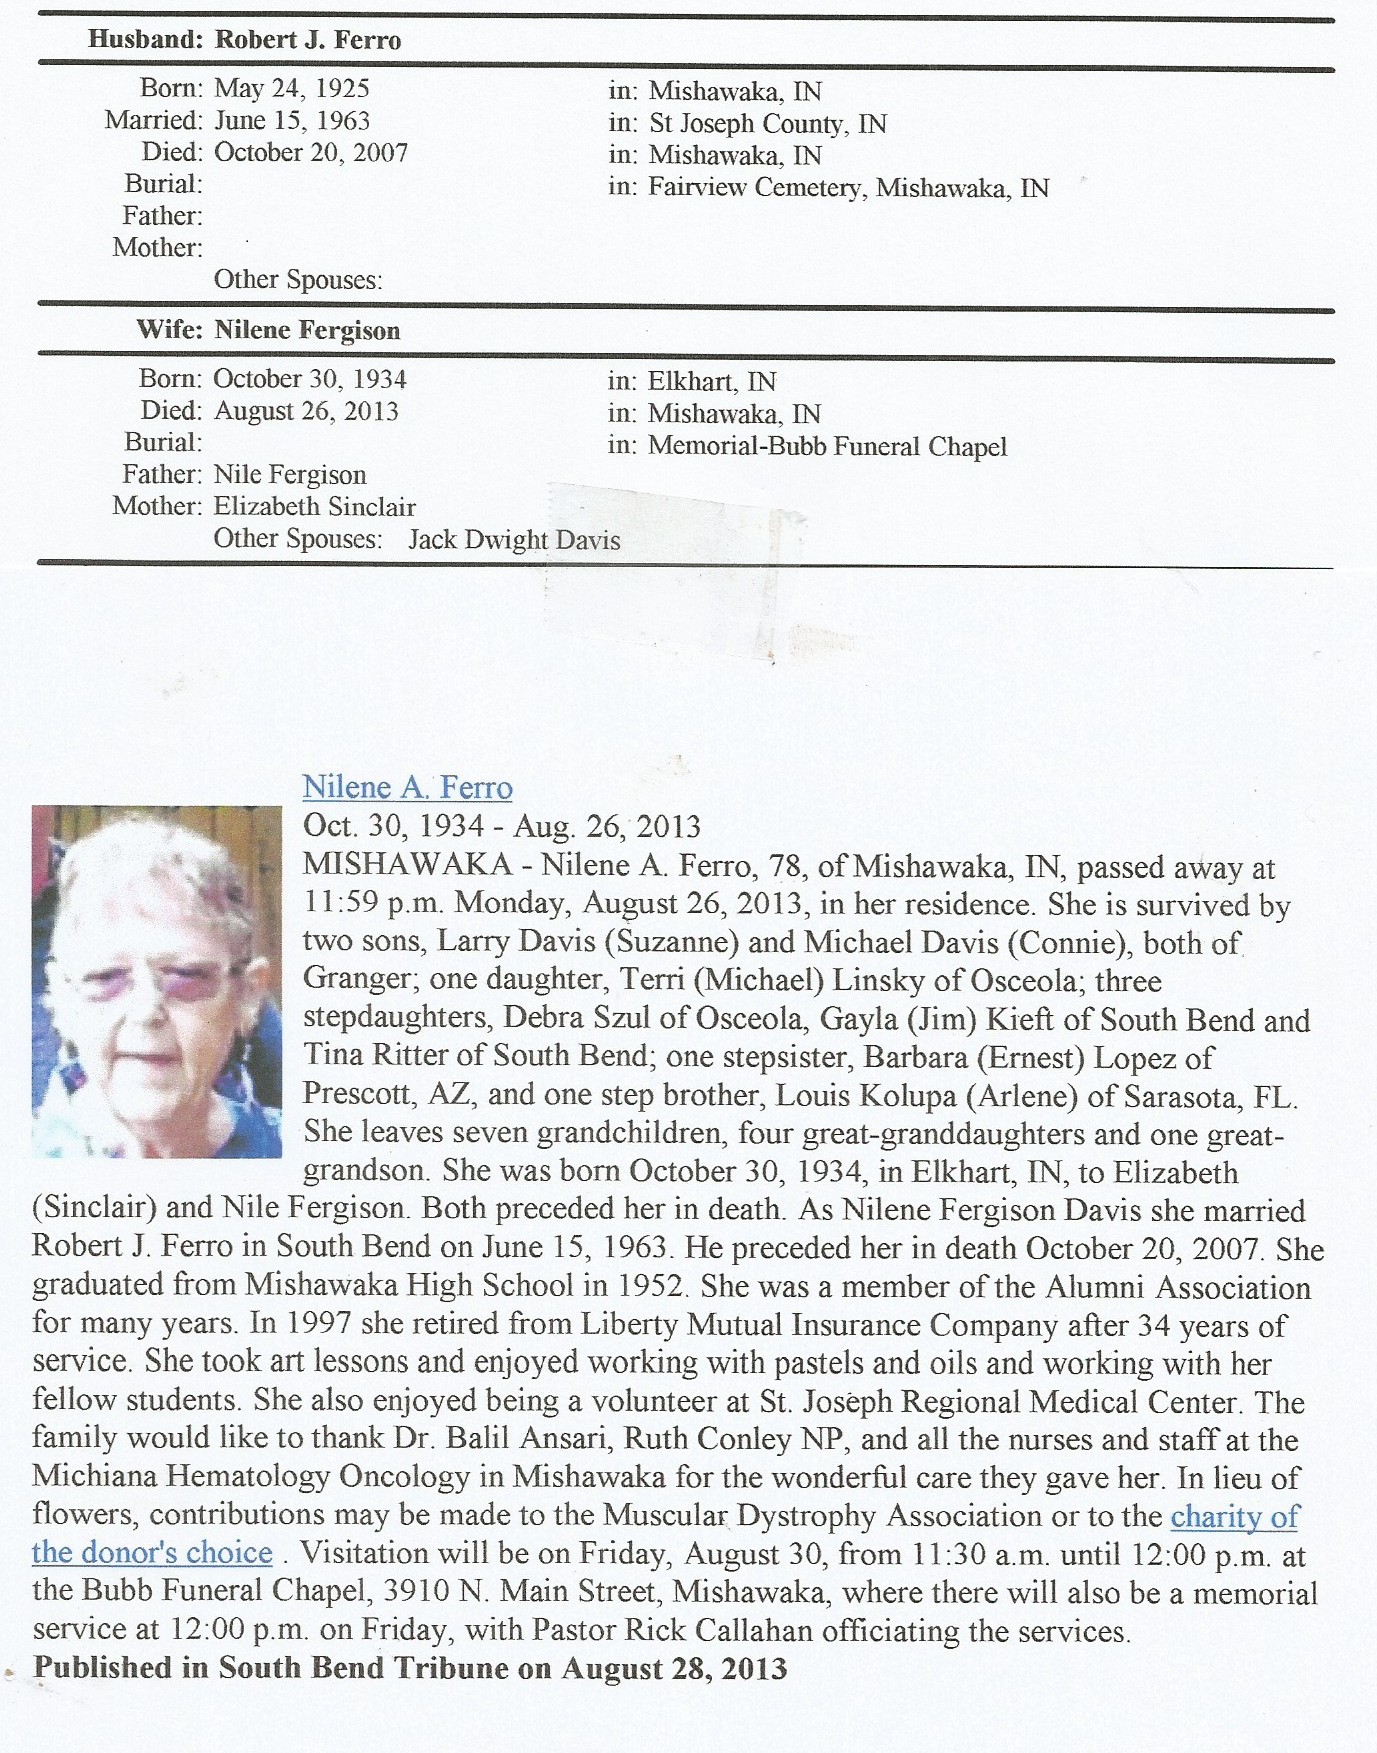 Husband: Robert J. Ferro
Born: May 24, 1925 in: Mishawaka, IN
Married: June 15, 1963 in: St Joseph County, IN
Died: October 20, 2007 in: Mishawaka, IN
Burial: in: Fairview Cemetery, Mishawaka, IN
Father:
Mother:
Other Spouses:
Wife: Nilene Fergison
Born: October 30, 1934 in: Elkhart, IN
Died: August 26, 2013 in: Mishawaka, IN
Burial: in: Memorial-Bubb Funeral Chapel
Father: Nile Fergison
Mother: Elizabeth Sinclair
Other Spouses: Jack Dwight Davis
Nilene A. Ferro
Oct. 30, 1934 - Aug. 26, 2013
MISHAWAKA - Nilene A. Ferro, 78, of Mishawaka, IN, passed away at
11:59 p.m. Monday, August 26, 2013, in her residence. She is survived by
two sons, Larry Davis (Suzanne) and Michael Davis (Connie), both of
Granger; one daughter, Terri (Michael) Linsky of Osceola; three
stepdaughters, Debra Szul of Osceola, Gayla (Jim) Kieft of South Bend and
Tina Ritter of South Bend; one stepsister, Barbara (Ernest) Lopez of
Prescott, AZ, and one step brother, Louis Kolupa (Arlene) of Sarasota, FL.
She leaves seven grandchildren, four great-granddaughters and one great-
grandson. She was born October 30, 1934, in Elkhart, IN, to Elizabeth
(Sinclair) and Nile Fergison. Both preceded her in death. As Nilene Fergison Davis she married
Robert J. Ferro in South Bend on June 15, 1963. He preceded her in death October 20, 2007. She
graduated from Mishawaka High School in 1952. She was a member of the Alumni Association
for many years. In 1997 she retired from Liberty Mutual Insurance Company after 34 years of
service. She took art lessons and enjoyed working with pastels and oils and working with her
fellow students. She also enjoyed being a volunteer at St. Joseph Regional Medical Center. The
family would like to thank Dr. Balil Ansari, Ruth Conley NP, and all the nurses and staff at the
Michiana Hematology Oncology in Mishawaka for the wonderful care they gave her. In lieu of
flowers, contributions may be made to the Muscular Dystrophy Association or to the charity of
the donor's choice . Visitation will be on Friday, August 30, from 11:30 a.m. until 12:00 p.m. at
the Bubb Funeral Chapel, 3910 N. Main Street, Mishawaka, where there will also be a memorial
service at 12:00 p.m. on Friday, with Pastor Rick Callahan officiating the services.
Published in South Bend Tribune on August 28, 2013